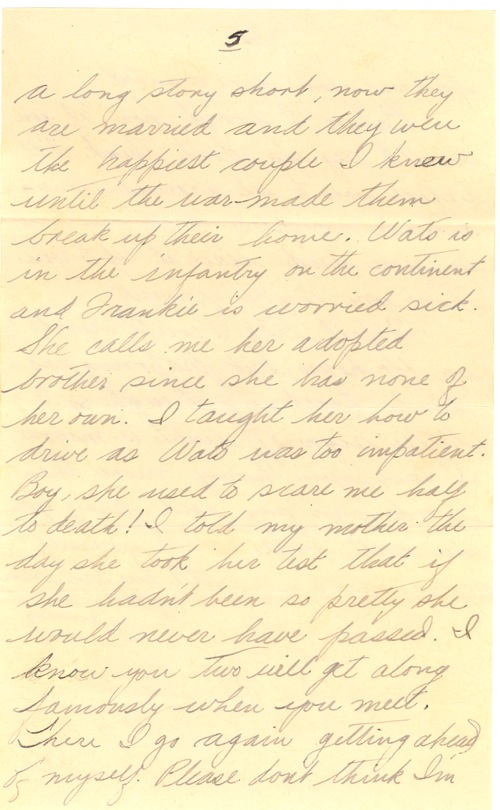 5
a long story short, now they
are married and they were
the happiest couple I knew
until the war made them
break up their home. Wats is
in the infantry on the continent
and Frankie is worried sick.
She calls me her adopted
brother since she has none of
her own. I taught her how to
drive as Wats was too impatient.
Boy, she used to scare me half
to death! I told my mother the
day she took her test that if
she hadn't been so pretty she
would never have passed. I
know you two will get along
famously when you meet.
There I go again getting ahead
of myself. Please dont think I'm